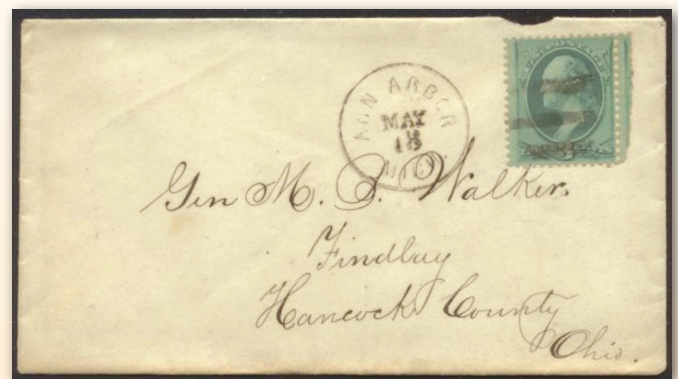 U.S. POSTAGE
ANN ARBOR
MAY
18
MICH.
Gen M. B. Walker.
Findlay
Hancock County
Ohio.